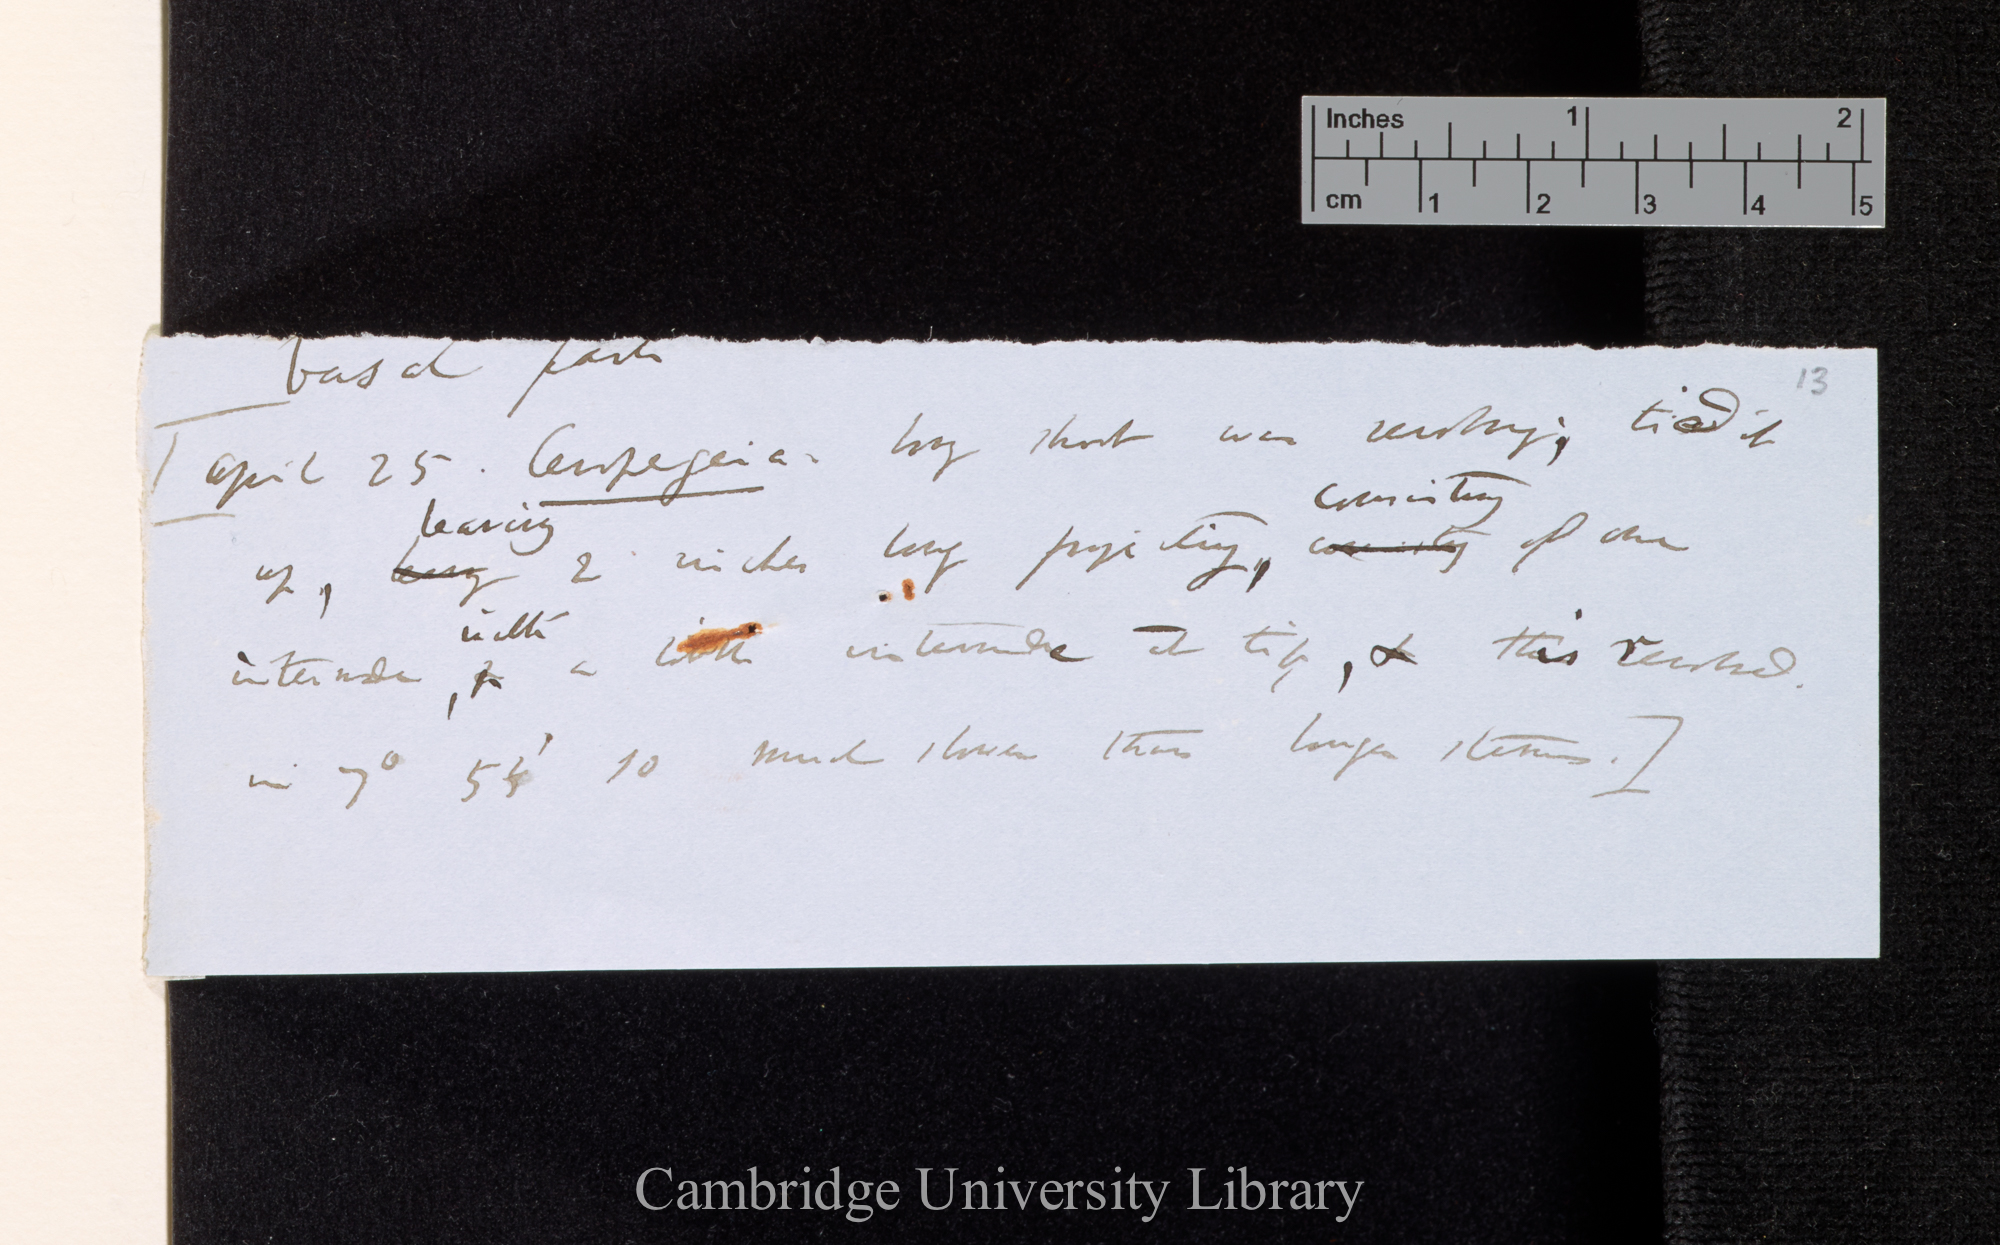 Inches 1 2
cm 1 2 3 4 5
basal part
13
[April 25. Ceropegeia. long shoot was revolving, tied it
leaving consisting
up, leavg 2 inches long projecting, consistg of one
with
internode, & a little internode at tip, & this revolved.
in 7° 55' so much slower than longer stems.]
Cambridge University Library